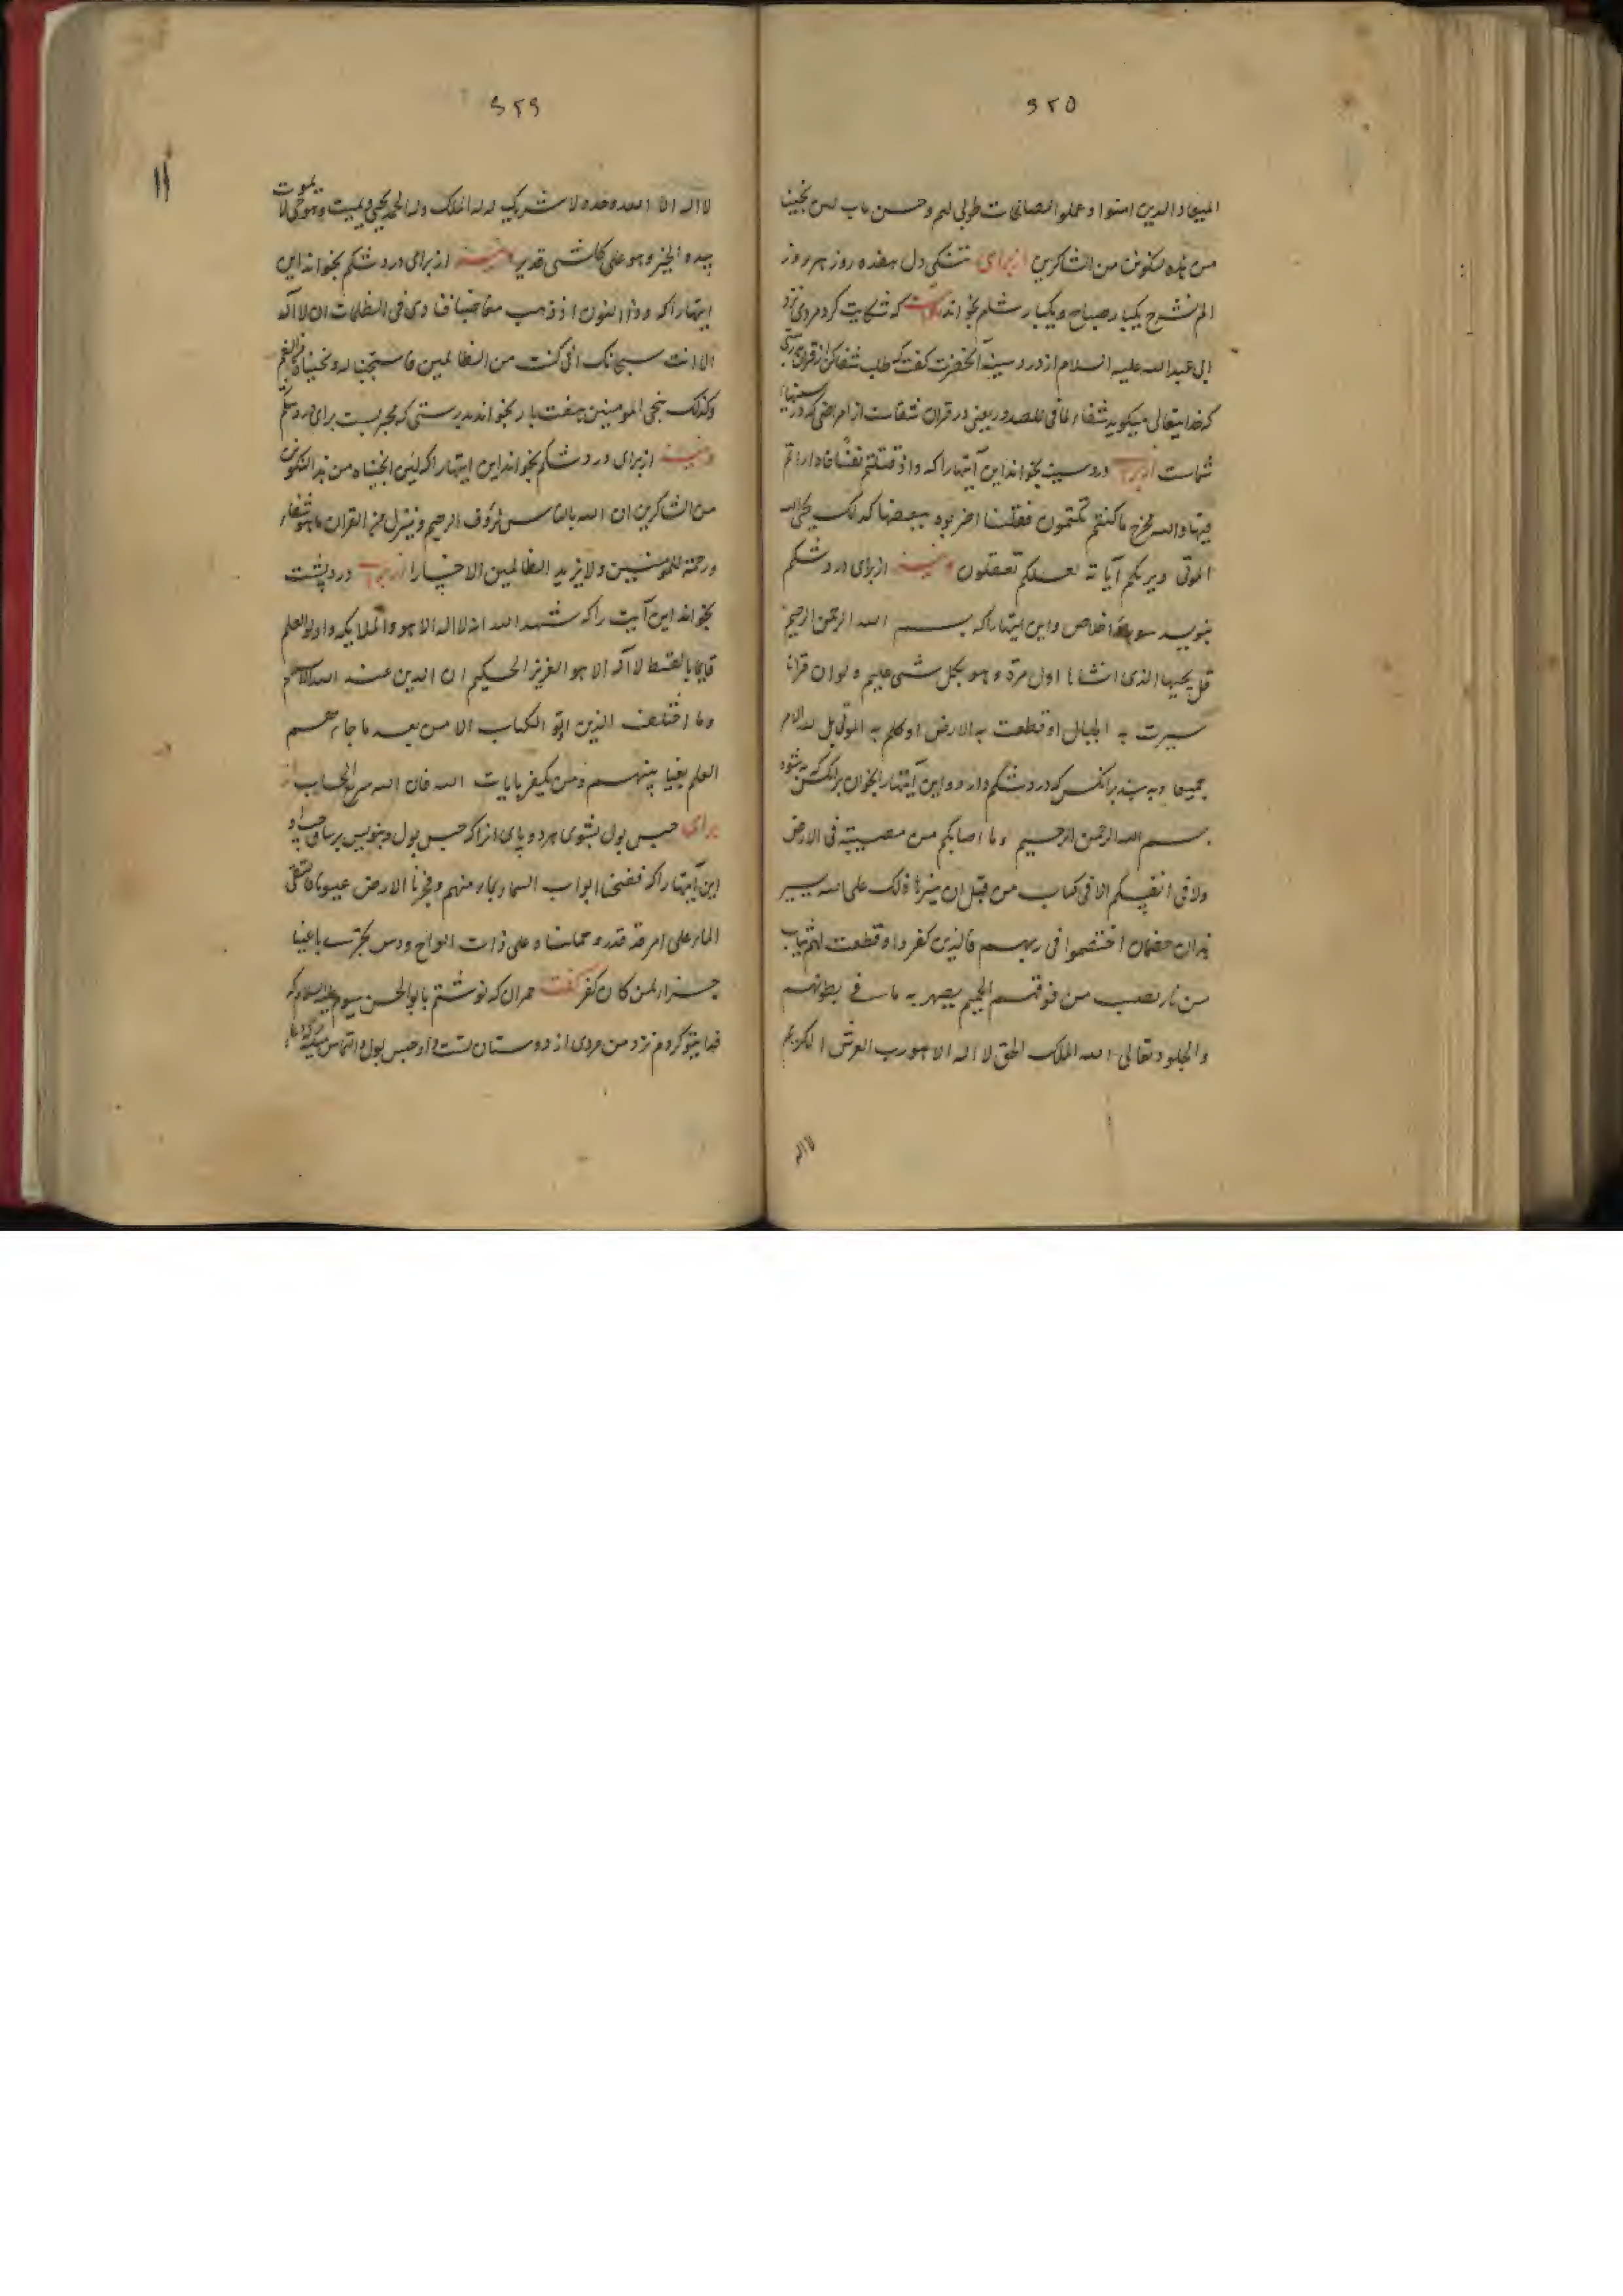 ۶۲۵
المیعاد الذین امنوا و عملوا الصالحات طوبی لهم و حسن ماب لئن نجینا
من هذه لنکونن من الشاکرین از برای تنگی دل هفده روز هر روز
الم نشرح یکبار صباح و یکبار شام بخواند که شکایت کرد مردی نزد
ابی عبدالله علیه السلام از درد سینه آنحضرت گفت که طلب شفا کن از قران
که خدایتعالی میگوید شفاء لما فی الصدور یعنی در قران شفاست از امراضی که در سینهای
شماست از برای درد سینه بخواند این آیتها را که و اذ قتلتم نفسا فادارءتم
فیها والله مخرج ما کنتم تکتمون فقلنا اضربوه ببعضها کذلک یحی الله
الموتی و یریکم آیاته لعلکم تعقلون از برای درد شکم
بنویسد سوره اخلاص و این ایتها را که بسم الله الرحمن الرحیم
قل یحییها الذی انشاها اول مرة و هو بکل شی علیم و لو ان قرانا
سیرت به الجبال او قطعت به الارض او کلم به الموتی بل لله الامر
جمیعا و به بندد بر انکس که درد شکم دارد و این آیتها را بخوان بر انکس که به شود
بسم الله الرحمن الرحیم و ما اصابکم من مصیبة فی الارض
ولا فی انفسکم الا فی کتاب من قبل ان نبرئها ذلک علی الله یسیر
هذان خصمان اختصموا فی ربهم فالذین کفروا قطعت لهم ثیاب
من نار یصب من فوقهم الحمیم یصهر به ما فی بطونهم
والجلود و تعالی الله الملک الحق لا اله الا هو رب العرش الکریم
لا اله
۶۲۶
۱۱
لا اله الا الله وحده لا شریک له له الملک و له الحمد یحیی و یمیت و هو حی لا یموت
بیده الخیر و هو علی کل شی قدیر از برای درد شکم بخواند این
ایتها را که و ذا النون اذ ذهب مغاضبا فنادی فی الظلمات ان لا اله
الا انت سبحانک انی کنت من الظالمین فاستجبنا له و نجیناه من الغم
و کذلک ننجی المومنین هفت بار بخواند بدرستی که مجربست برای درد شکم
از برای درد شکم بخواند این ایتها را که لئن انجیناه من هذه لنکونن
من الشاکرین ان الله بالناس لرؤف الرحیم و ننزل من القران ما هو شفاء
و رحمة للمومنین و لا یزید الظالمین الا خسارا از برای درد پشت
بخواند این آیت را که شهد الله انه لا اله الا هو و الملایکه و اولو العلم
قایما بالقسط لا اله الا هو العزیز الحکیم ان الدین عند الله الاسلام
و ما اختلف الذین اوتو الکتاب الا من بعد ما جاءهم
العلم بغیا بینهم و من یکفر بایات الله فان الله سریع الحساب
برای حبس بول بشوی هر دو پای انرا که حبس بول و بنویس بر ساق
این آیتها را که ففتحنا ابواب السماء بماء منهم و فجرنا الارض عیونا فالتقی
الماء علی امر قد قدر و حملناه علی ذات الواح و دسر تجری باعیننا
جزاء لمن کان کفر گفت حمران که نوشتم بابو الحسن سیوم علیه السلام که
فدایتو گردم نزد من مردی از دوستان تست و او حبس بول و التماس